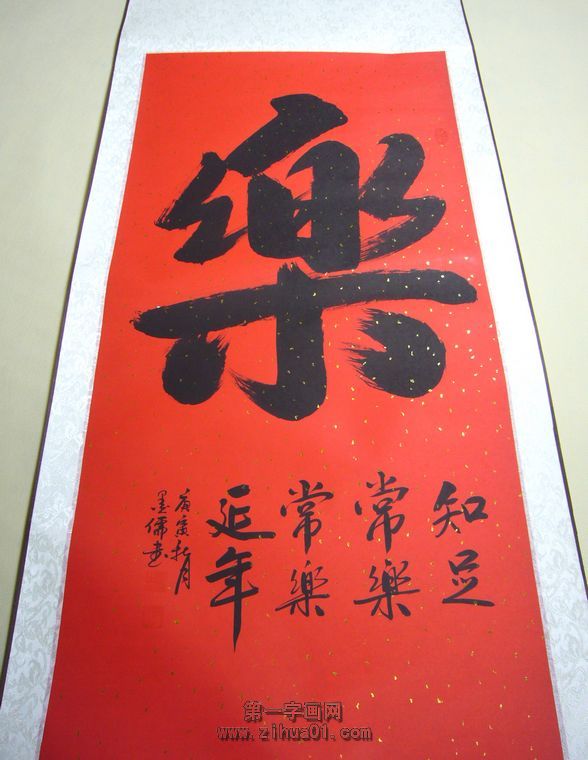 樂
知足
常樂
常樂
延年
庚寅秋月
墨儒書
第一字画网
www.zihua01.com